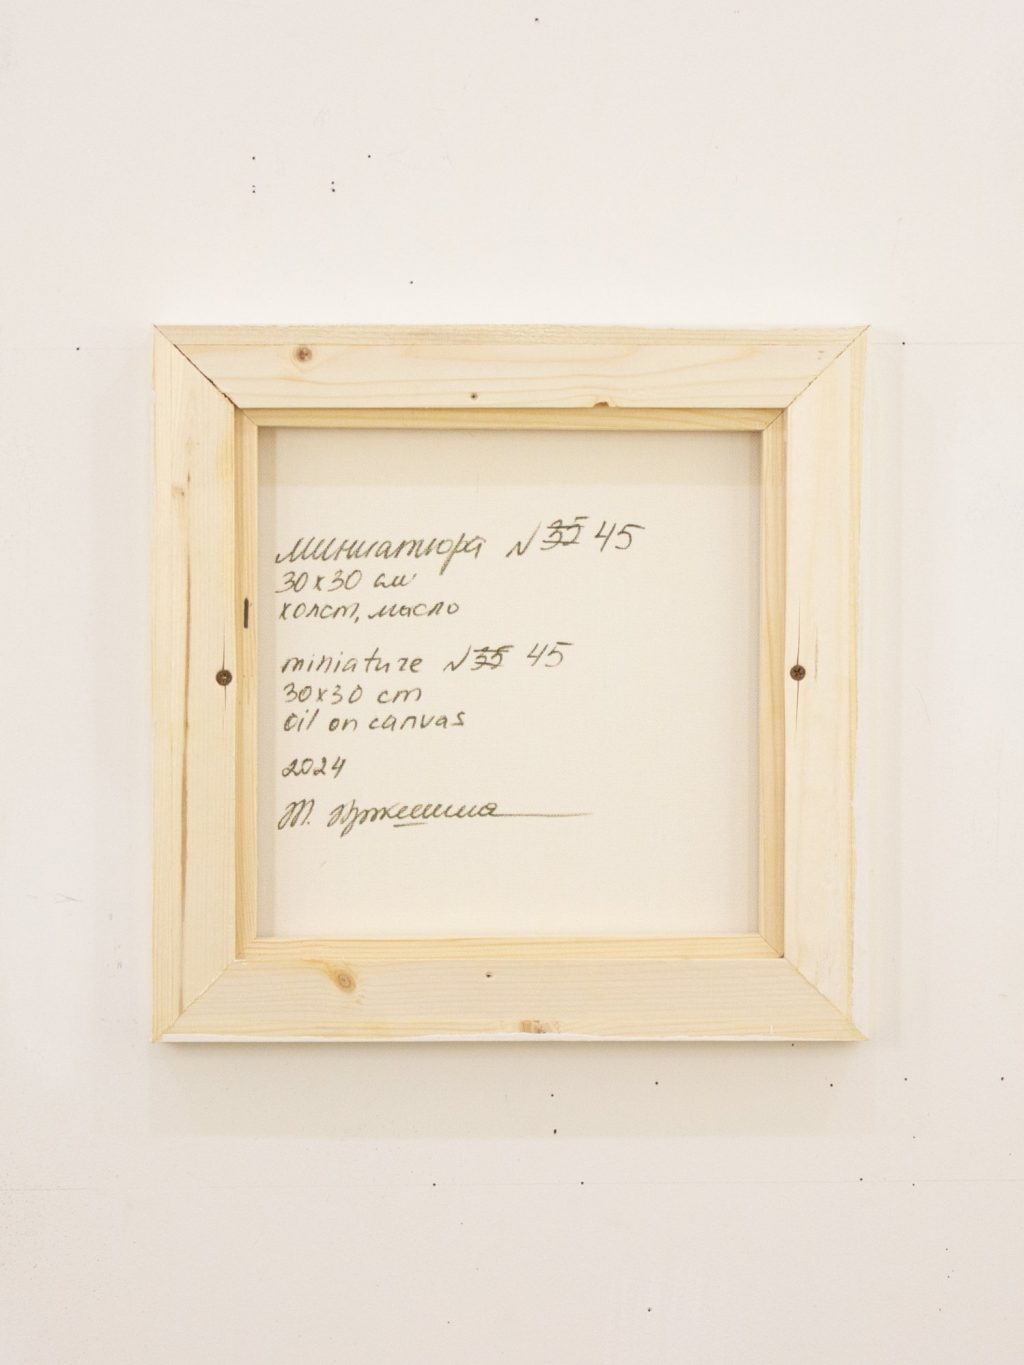 миниатюра N 35 45
30х30 см
холст, масло
miniature N 35 45
30x30 cm
oil on canvas
2024